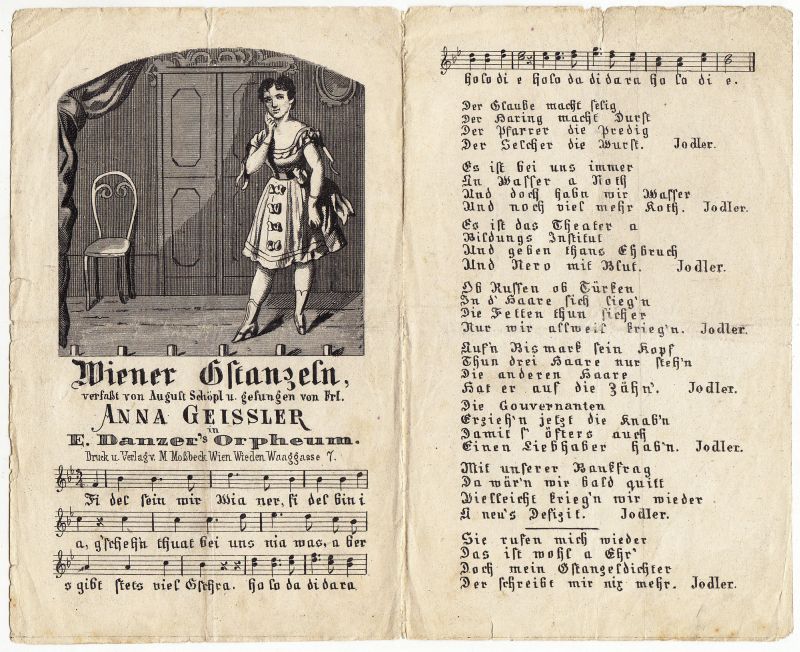 Wiener Gstanzeln,
verfaßt von August Schöpl u. gesungen von Frl.
ANNA GEISSLER
in
E. Danzer's Orpheum.
Druck u. Verlag v. M. Moßbeck Wien, Wieden Waaggasse 7.
Fi del sein wir Wia ner, fi del bin i
a, g'scheh'n thuat bei uns nia was, a ber
s gibt stets viel Gschra. ho lo da di dara
ho lo di e ho lo da di dara ho lo di e.
Der Glaube macht selig
Der Haring macht Durst
Der Pfarrer die Predig
Der Selcher die Wurst. Jodler.
Es ist bei uns immer
An Wasser a Noth
Und doch habn wir Wasser
Und noch viel mehr Koth. Jodler.
Es ist das Theater a
Bildungs Institut
Und geben thans Ehbruch
Und Nero mit Blut. Jodler.
Ob Russen ob Türken
In d' Haare sich lieg'n
Die Fetten thun sicher
Nur wir allweil krieg'n. Jodler.
Auf'n Bismark sein Kopf
Thun drei Haare nur steh'n
Die anderen Haare
Hat er auf die Zähn'. Jodler.
Die Gouvernanten
Erzieh'n jetzt die Knab'n
Damit s' öfters auch
Einen Liebhaber hab'n. Jodler.
Mit unserer Bankfrag
Da wär'n wir bald quitt
Vielleicht krieg'n wir wieder
A neu's Defizit. Jodler.
Sie rufen mich wieder
Das ist wohl a Ehr'
Doch mein Gstanzeldichter
Der schreibt mir nix mehr. Jodler.